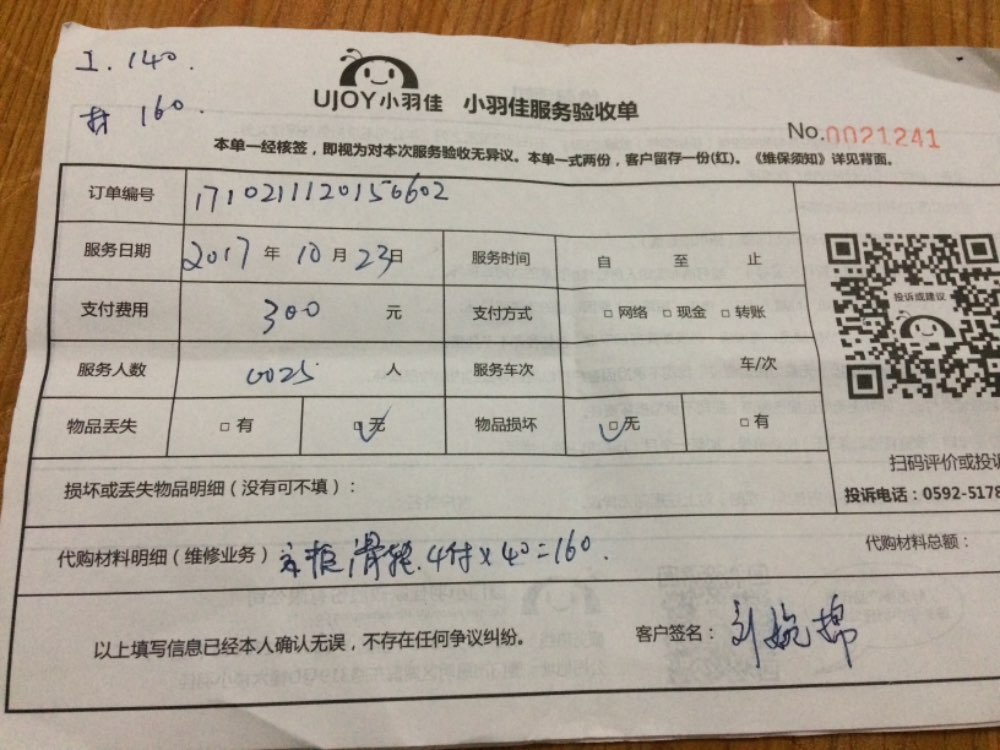 工.140.
材 160.
UJOY小羽佳 小羽佳服务验收单
No.0021241
本单一经核签，即视为对本次服务验收无异议。本单一式两份，客户留存一份(红)。《维保须知》详见背面。
订单编号 1710211120156602
服务日期 2017年10月23日 服务时间 自 至 止
支付费用 300 元 支付方式 □网络 □现金 □转账
投诉或建议
服务人数 0025 人 服务车次 车/次
物品丢失 □有 □无 物品损坏 □无 □有
扫码评价或投诉
损坏或丢失物品明细（没有可不填）：
投诉电话：0592-5178
代购材料明细（维修业务） 滑轮.4付×40=160.
代购材料总额：
以上填写信息已经本人确认无误，不存在任何争议纠纷。 客户签名：刘